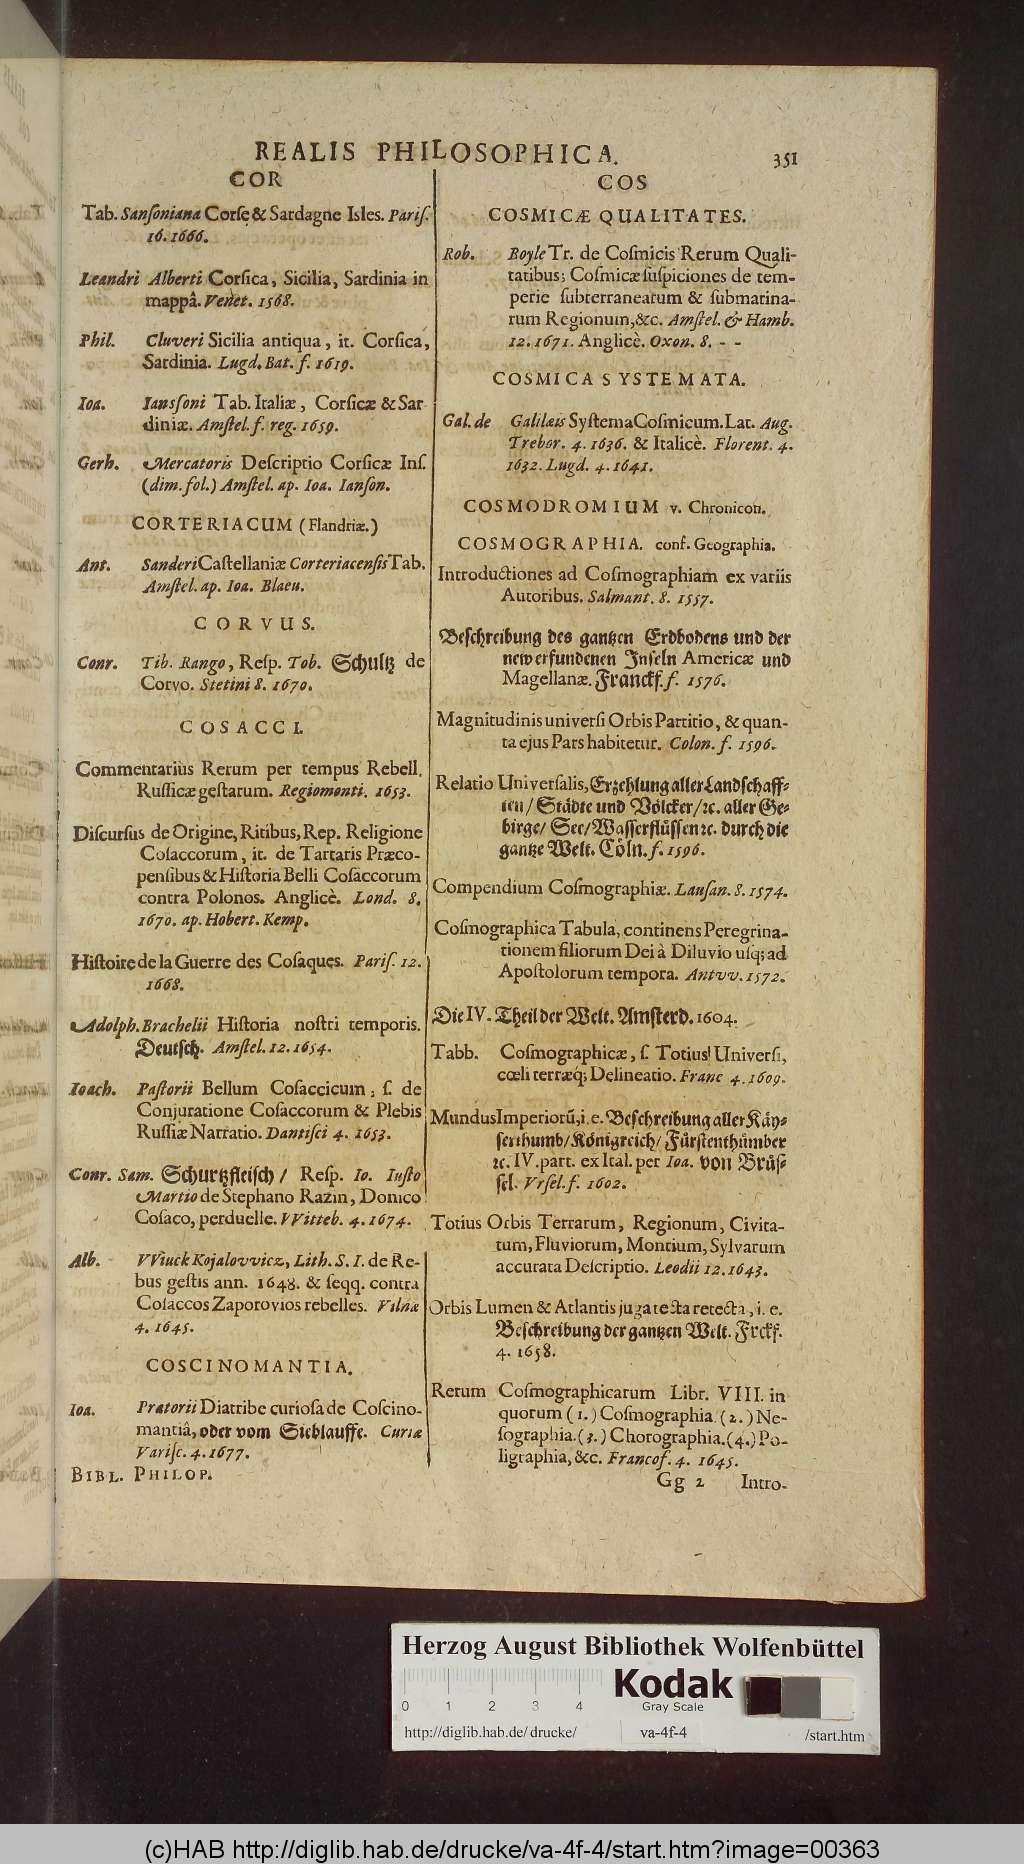 REALIS PHILOSOPHICA.
351
COR
Tab. Sanſoniana Corſe & Sardagne Isles. Pariſ.
16. 1666.
Leandri Alberti Corſica, Sicilia, Sardinia in
mappâ. Venet. 1568.
Phil. Cluveri Sicilia antiqua, it. Corſica,
Sardinia. Lugd. Bat. f. 1619.
Ioa. Ianſſoni Tab. Italiæ, Corſicæ & Sar
diniæ. Amſtel. f. reg. 1659.
Gerh. Mercatoris Deſcriptio Corſicæ Inſ.
(dim. fol.) Amſtel. ap. Ioa. Ianſon.
CORTERIACUM (Flandriæ.)
Ant. Sanderi Caſtellaniæ Corteriacenſis Tab.
Amſtel. ap. Ioa. Blaeu.
CORVUS.
Conr. Tib. Rango, Reſp. Tob. Schultz de
Corvo. Stetini 8. 1670.
COSACCI.
Commentariùs Rerum per tempus Rebell.
Ruſſicæ geſtarum. Regiomonti. 1653.
Diſcurſus de Origine, Ritibus, Rep. Religione
Coſaccorum, it. de Tartaris Præco-
penſibus & Hiſtoria Belli Coſaccorum
contra Polonos. Anglicè. Lond. 8.
1670. ap. Hobert. Kemp.
Hiſtoire de la Guerre des Coſaques. Pariſ. 12.
1668.
Adolph. Brachelii Hiſtoria noſtri temporis.
Deutſch. Amſtel. 12. 1654.
Ioach. Paſtorii Bellum Coſaccicum, ſ. de
Conjuratione Coſaccorum & Plebis
Ruſſiæ Narratio. Dantiſci 4. 1653.
Conr. Sam. Schurtzfleiſch / Reſp. Io. Iuſto
Martio de Stephano Razin, Donico
Coſaco, perduelle. VVitteb. 4. 1674.
Alb. VViuck Kojalovvicz, Lith. S. I. de Re-
bus geſtis ann. 1648. & ſeqq. contra
Coſaccos Zaporovios rebelles. Vilnæ
4. 1645.
COSCINOMANTIA.
Ioa. Prætorii Diatribe curioſa de Coſcino-
mantiâ, oder vom Sieblauffe. Curiæ
Variſc. 4. 1677.
BIBL. PHILOP.
COS
COSMICÆ QUALITATES.
Rob. Boyle Tr. de Coſmicis Rerum Quali-
tatibus; Coſmicæ ſuſpiciones de tem-
perie ſubterranearum & ſubmarina-
rum Regionum, &c. Amſtel. & Hamb.
12. 1671. Anglicè. Oxon. 8. - -
COSMICA SYSTEMATA.
Gal. de Galilæis Syſtema Coſmicum. Lat. Aug.
Trebor. 4. 1636. & Italicè. Florent. 4.
1632. Lugd. 4. 1641.
COSMODROMIUM v. Chronicon.
COSMOGRAPHIA. conf. Geographia.
Introductiones ad Coſmographiam ex variis
Autoribus. Salmant. 8. 1557.
Beſchreibung des gantzen Erdbodens und der
new erfundenen Inſeln Americæ und
Magellanæ. Franckf. f. 1576.
Magnitudinis univerſi Orbis Partitio, & quan-
ta ejus Pars habitetur. Colon. f. 1596.
Relatio Univerſalis, Erzehlung aller Landſchaff-
ten/ Städte und Völcker/ ꝛc. aller Ge-
birge/ See/ Waſſerflüſſen ꝛc. durch die
gantze Welt. Cöln. f. 1596.
Compendium Coſmographiæ. Lauſan. 8. 1574.
Coſmographica Tabula, continens Peregrina-
tionem filiorum Dei à Diluvio uſq; ad
Apoſtolorum tempora. Antvv. 1572.
Die IV. Theil der Welt. Amſterd. 1604.
Tabb. Coſmographicæ, ſ. Totius Univerſi,
cœli terræq; Delineatio. Franc 4. 1609.
Mundus Imperiorū, i. e. Beſchreibung aller Käy-
ſerthumb/ Königreich/ Fürſtenthümber
ꝛc. IV. part. ex Ital. per Ioa. von Brüſ-
ſel. Vrſel. f. 1602.
Totius Orbis Terrarum, Regionum, Civita-
tum, Fluviorum, Montium, Sylvarum
accurata Deſcriptio. Leodii 12. 1643.
Orbis Lumen & Atlantis juga tecta retecta, i. e.
Beſchreibung der gantzen Welt. Frckf.
4. 1658.
Rerum Coſmographicarum Libr. VIII. in
quorum (1.) Coſmographia. (2.) Ne-
ſographia. (3.) Chorographia. (4.) Po-
ligraphia, &c. Francof. 4. 1645.
Gg 2 Intro-
Herzog August Bibliothek Wolfenbüttel
0 1 2 3 4
Kodak
Gray Scale
http://diglib.hab.de/drucke/ va-4f-4 /start.htm
(c)HAB http://diglib.hab.de/drucke/va-4f-4/start.htm?image=00363